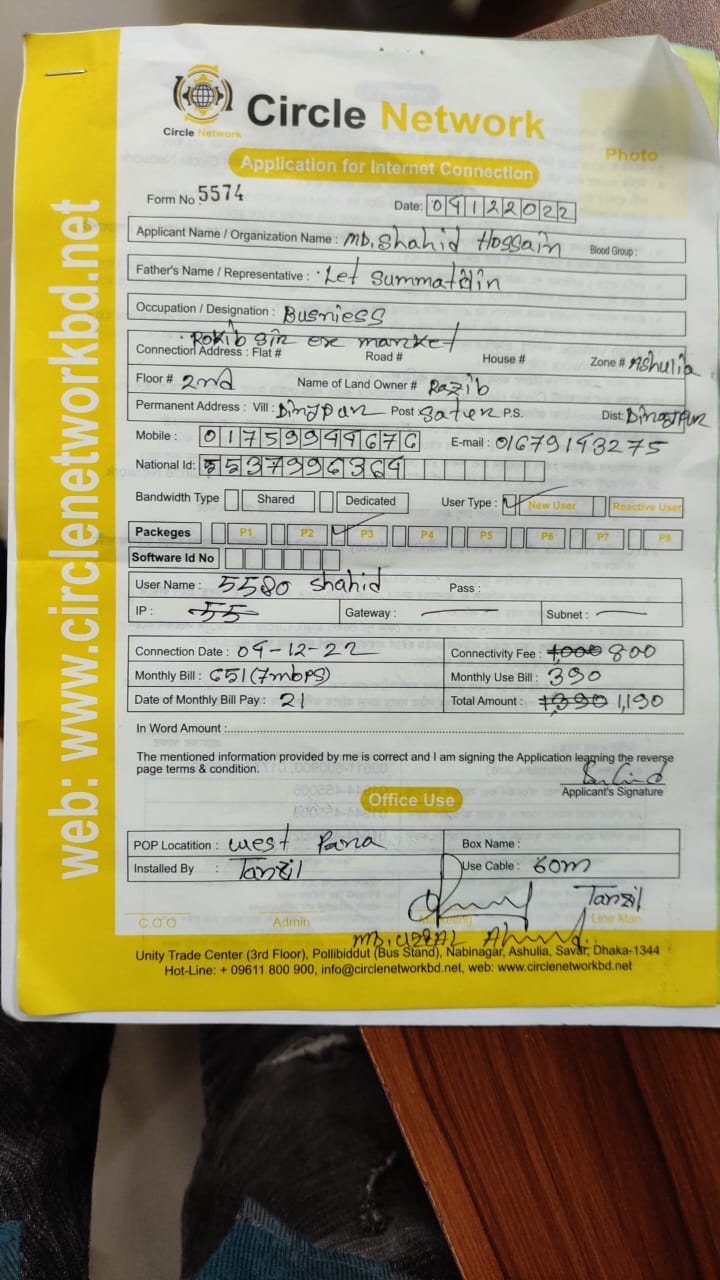 web: www.circlenetworkbd.net
Circle Network
Circle Network
Photo
Application for Internet Connection
Form No 5574
Date: 04122022
Applicant Name / Organization Name : MD. Shahid Hossain Blood Group :
Father's Name / Representative : Let Summatdin
Occupation / Designation : Busniess
Rokib Sir er market
Connection Address : Flat # Road # House # Zone # Ashulia
Floor # 2nd Name of Land Owner # Razib
Permanent Address : Vill : Dinajpur Post P.S. Dist:
Mobile : 01759944676 E-mail : 01679143275
National Id: 5537996364
Bandwidth Type Shared Dedicated User Type : New User Reactive User
Packeges P1 P2 P3 P4 P5 P6 P7 P8
Software Id No
User Name : 5580 shahid Pass :
IP : 55 Gateway : Subnet :
Connection Date : 04-12-22 Connectivity Fee : 1,000 800
Monthly Bill : 651 (7mbps) Monthly Use Bill : 390
Date of Monthly Bill Pay : 21 Total Amount : 1,390 1,190
In Word Amount :
The mentioned information provided by me is correct and I am signing the Application learning the reverse
page terms & condition.
Applicant's Signature
Office Use
POP Locatition : west Para Box Name :
Installed By : Tanzil Use Cable : 60m
Tanzil
C.O.O Admin Line Man
Unity Trade Center (3rd Floor), Pollibiddut (Bus Stand), Nabinagar, Ashulia, Savar, Dhaka-1344
Hot-Line: + 09611 800 900, info@circlenetworkbd.net, web: www.circlenetworkbd.net